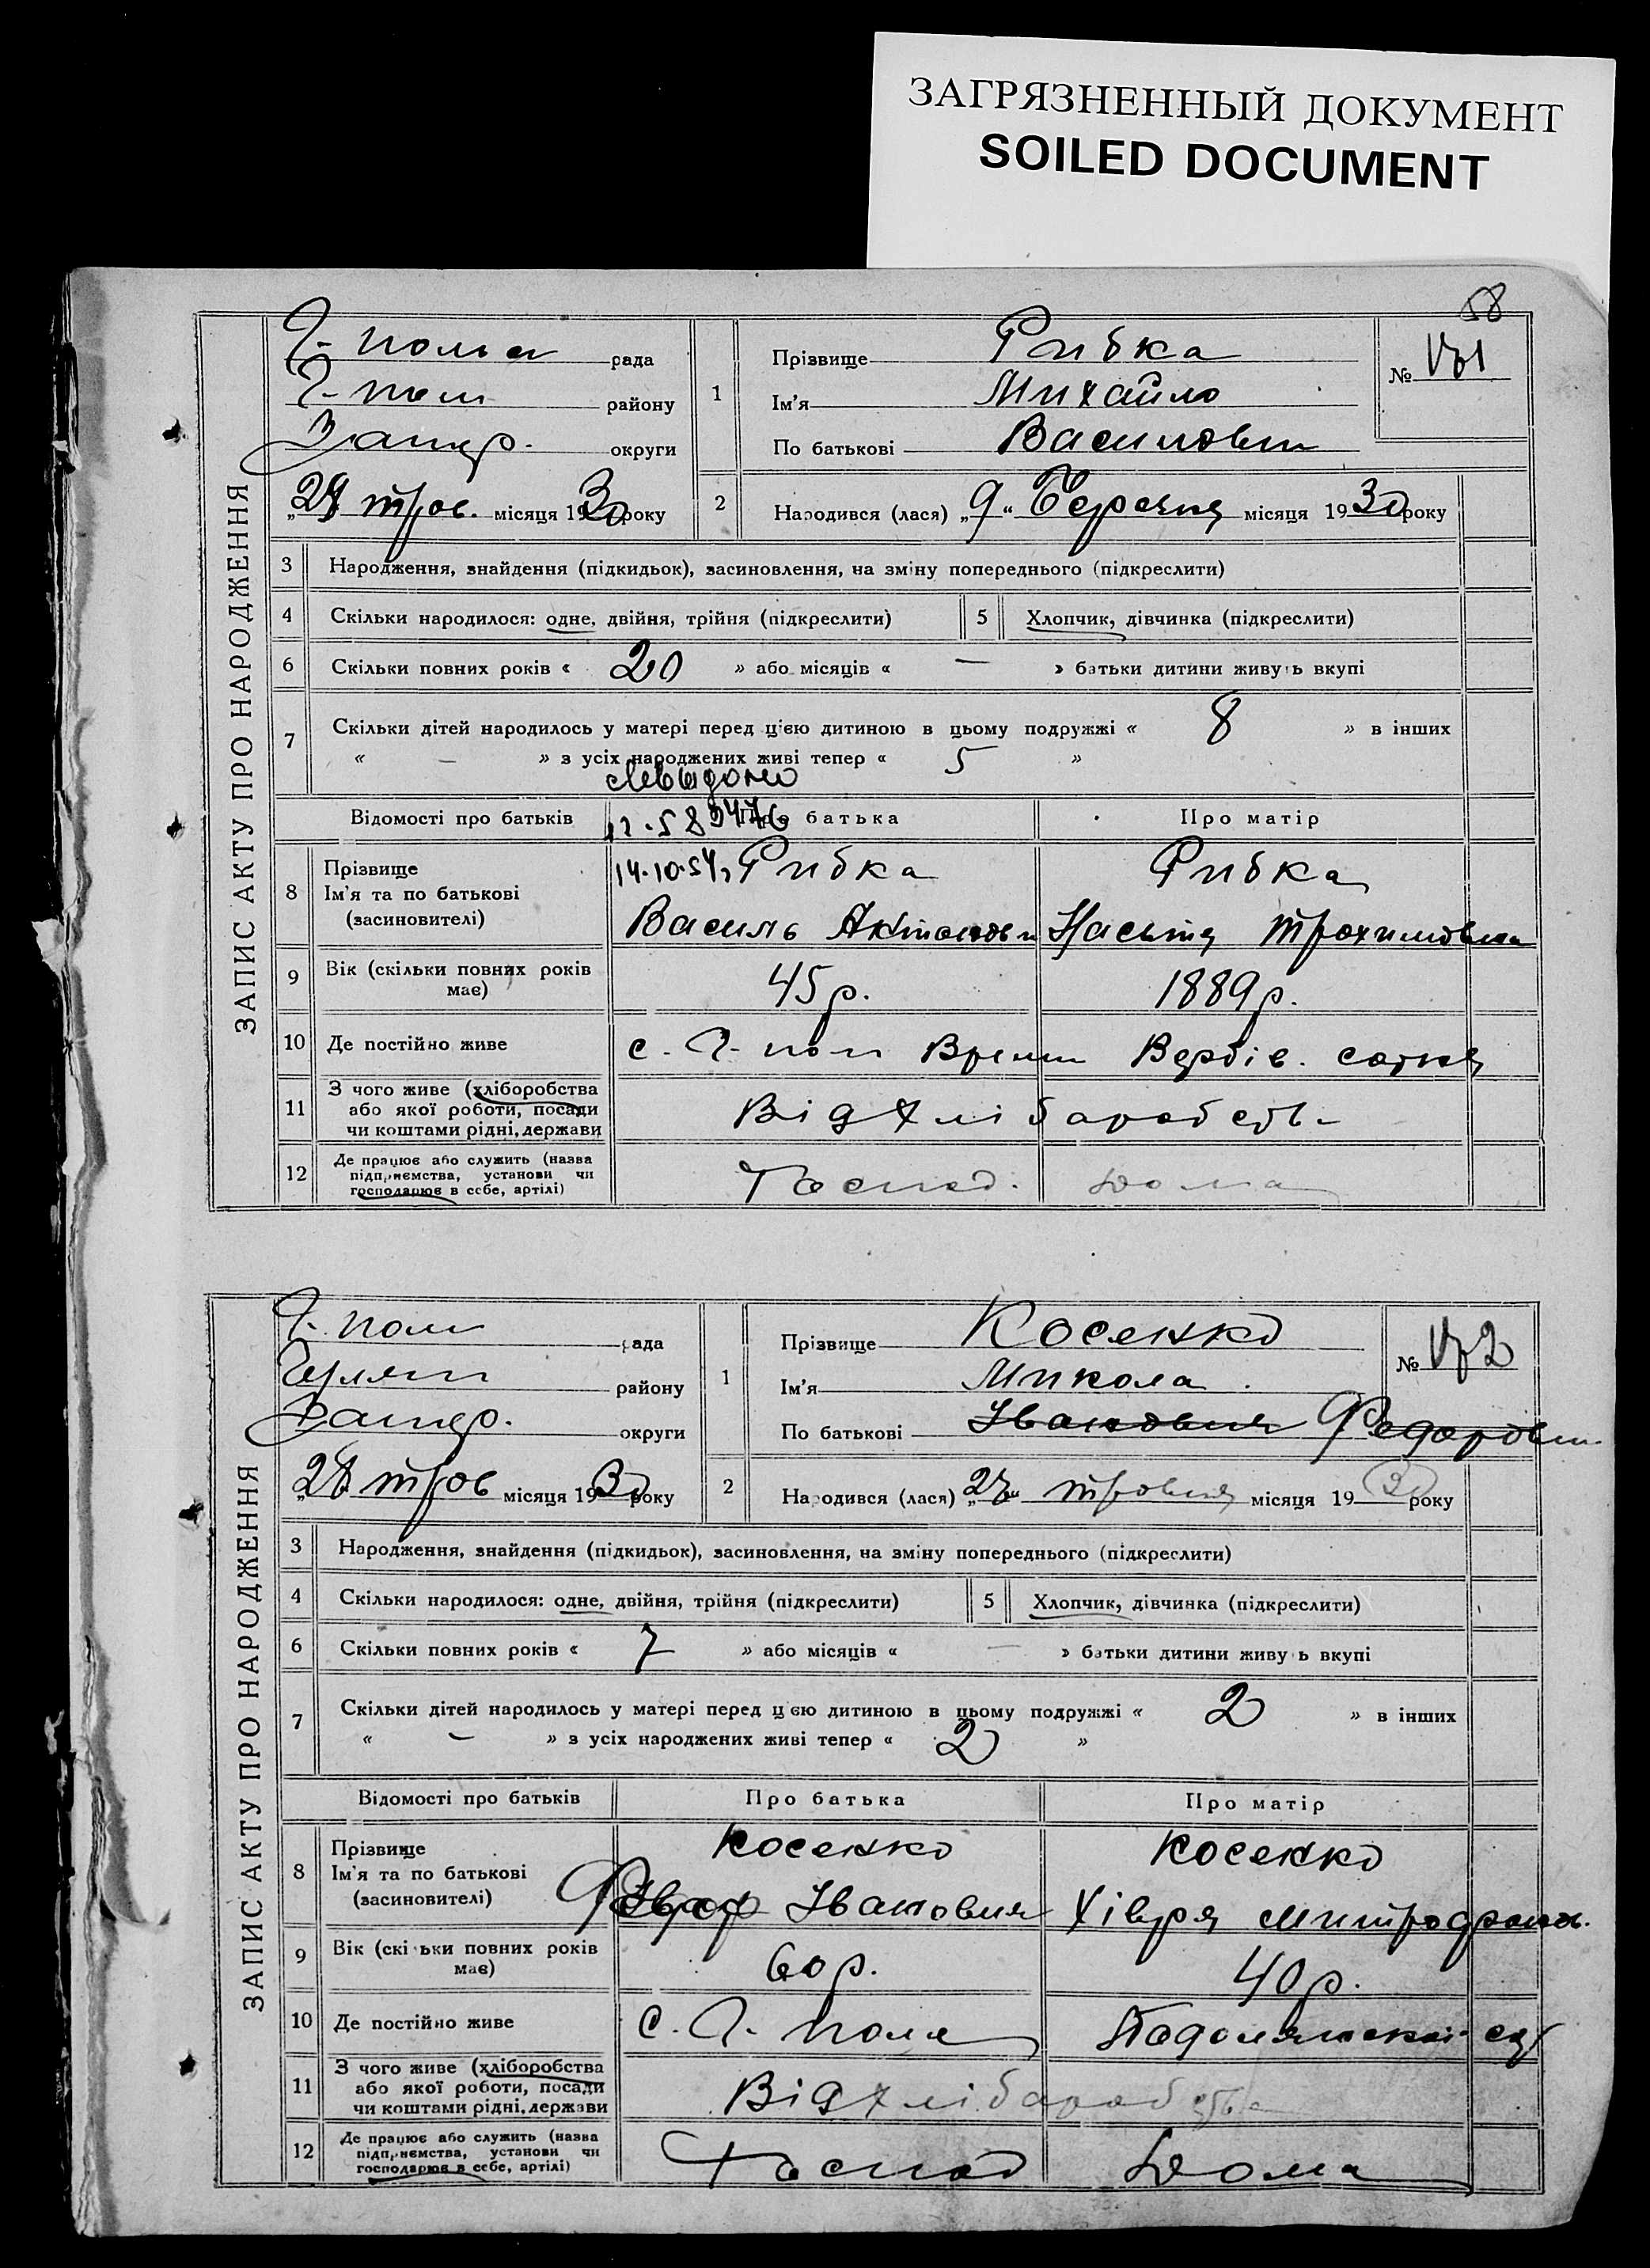 ЗАГРЯЗНЕННЫЙ ДОКУМЕНТ
SOILED DOCUMENT
58
ЗАПИС АКТУ ПРО НАРОДЖЕННЯ
рада
району
Запор. округи
місяця 1930 року
1
Прізвище Рибка
Ім'я Михайло
По батькові Василович
№
2 Народився (лася) „9“ Березня місяця 1930 року
3 Народження, знайдення (підкидьок), засиновлення, на зміну попереднього (підкреслити)
4 Скільки народилося: одне, двійня, трійня (підкреслити) 5 Хлопчик, дівчинка (підкреслити)
6 Скільки повних років « 20 » або місяців « — » батьки дитини живуть вкупі
7 Скільки дітей народилось у матері перед цією дитиною в цьому подружжі « 8 » в інших
« — » з усіх народжених живі тепер « 5 »
Відомості про батьків Про батька Про матір
8 Прізвище
Ім'я та по батькові
(засиновителі)
14.10.54 Рибка Рибка
Василь Настя Трохимовна
9 Вік (скільки повних років
має) 45 р. 1889 р.
10 Де постійно живе с.
11 З чого живе (хліборобства
або якої роботи, посади
чи коштами рідні, держави
Від хліборобств
12 Де працює або служить (назва
підприємства, установи чи
господарює в себе, артілі)
Господ. Дома
ЗАПИС АКТУ ПРО НАРОДЖЕННЯ
рада
району
Запор. округи
місяця 1930 року
1
Прізвище Косенко
Ім'я Микола
По батькові Федорович
№
2 Народився (лася) травня місяця 1930 року
3 Народження, знайдення (підкидьок), засиновлення, на зміну попереднього (підкреслити)
4 Скільки народилося: одне, двійня, трійня (підкреслити) 5 Хлопчик, дівчинка (підкреслити)
6 Скільки повних років « 7 » або місяців « — » батьки дитини живуть вкупі
7 Скільки дітей народилось у матері перед цією дитиною в цьому подружжі « 2 » в інших
« — » з усіх народжених живі тепер « 2 »
Відомості про батьків Про батька Про матір
8 Прізвище
Ім'я та по батькові
(засиновителі)
Косенко Косенко
Іванович Хівря
9 Вік (скільки повних років
має) 60 р. 40 р.
10 Де постійно живе с.
11 З чого живе (хліборобства
або якої роботи, посади
чи коштами рідні, держави
Від хліборобства
12 Де працює або служить (назва
підприємства, установи чи
господарює в себе, артілі)
Господ Дома